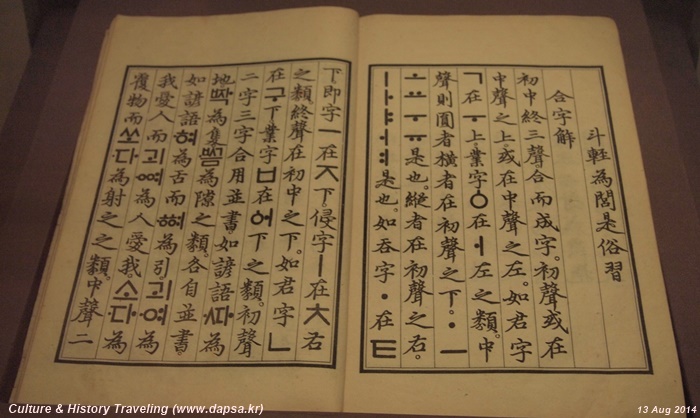 斗輕為閭是俗習
合字解
初中終三聲合而成字。初聲或在
中聲之上。或在中聲之左。如君字
ㄱ在ㅜ上。業字ㆁ在ㅓ左之類。中
聲則圓者橫者在初聲之下。ㆍㅡ
ㅗㅛㅜㅠ是也。縱者在初聲之右。
ㅣㅏㅑㅓㅕ是也。如吞字ㆍ在ㅌ
下。即字ㅡ在ㅈ下。侵字ㅣ在ㅊ右
之類。終聲在初中之下。如君字ㄴ
在구下。業字ㅂ在ᅌᅥ下之類。初聲
二字三字合用並書。如諺語ᄯᅡ為
地。ᄧᅡᆨ為隻。ᄢᅳᆷ為隙之類。各自並書。
如諺語혀為舌而ᅘᅧ為引。괴여為
我愛人而괴ᅇᅧ為人愛我。소다為
覆物而쏘다為射之之類。中聲二
Culture & History Traveling (www.dapsa.kr)
13 Aug 2014